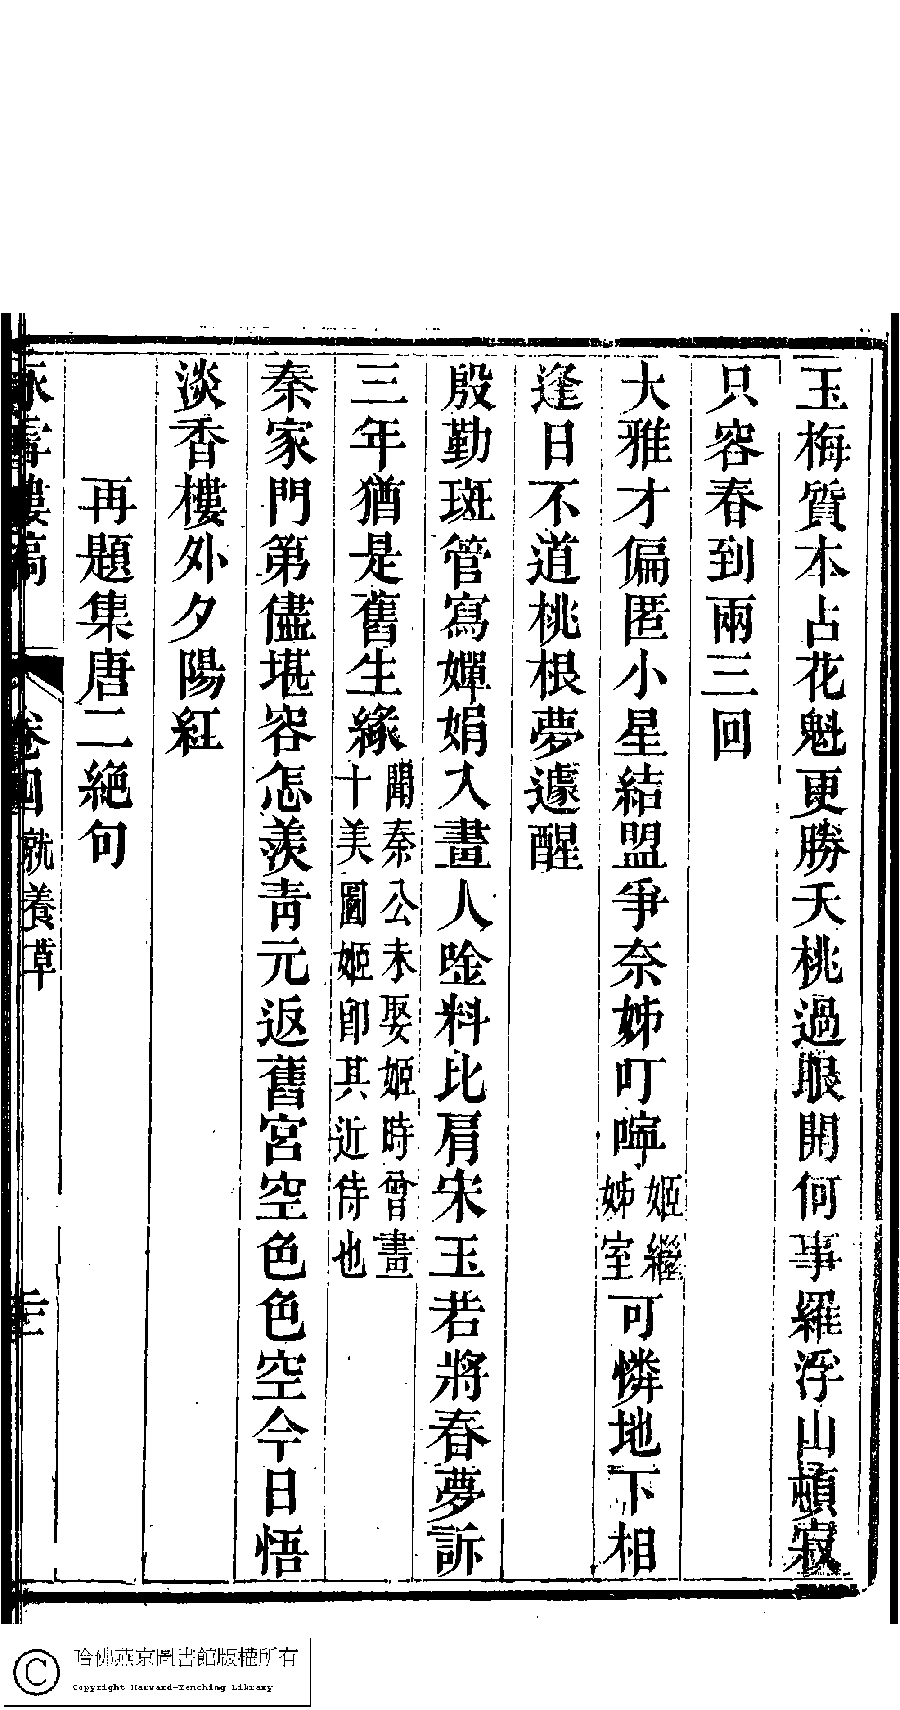 玉梅質本占花魁更勝夭桃過眼開何事羅浮山頓寂
只容春到兩三回
大雅才偏匿小星結盟爭奈姊叮嚀姬繼姊室可憐地下相
逢日不道桃根夢遽醒
殷勤斑管寫嬋娟入畫人唫料比肩宋玉若將春夢訴
三年猶是舊生緣聞秦公未娶姬時曾畫十美圖姬卽其近侍也
秦家門第儘堪容怎羨靑元返舊宮空色色空今日悟
淡香樓外夕陽紅
再題集唐二絕句
樓稿 卷四 就養草
哈佛燕京圖書館版權所有
Copyright Harvard-Yenching Library